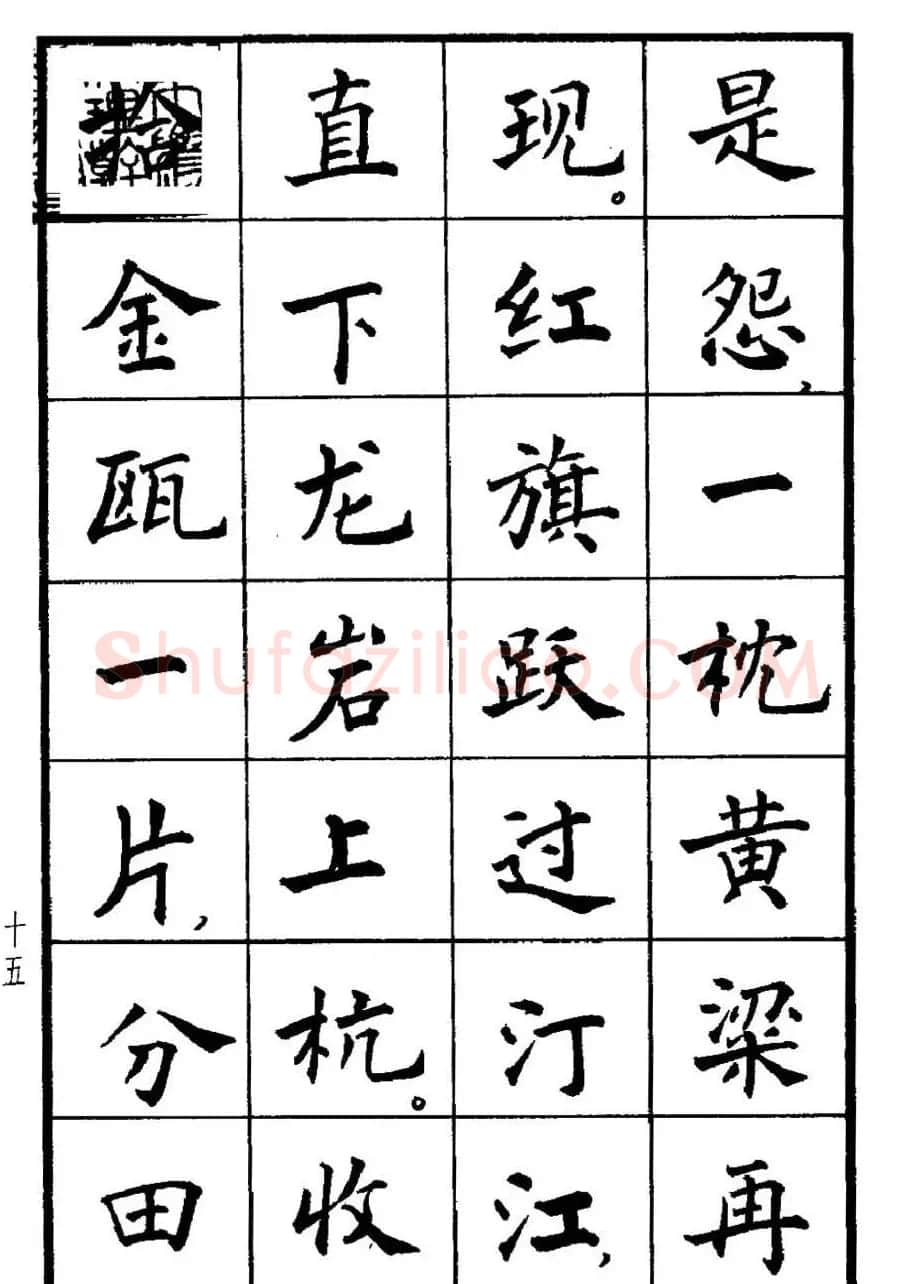 是怨,一枕黄粱再
现。红旗跃过汀江,
直下龙岩上杭。收
拾金瓯一片,分田
十五
Shufaziliao.COM